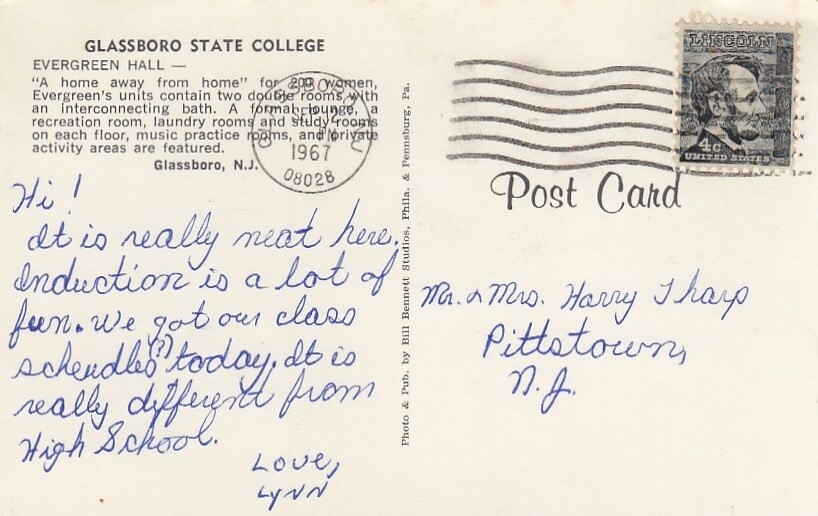 GLASSBORO STATE COLLEGE
EVERGREEN HALL —
"A home away from home" for 200 women,
Evergreen's units contain two double rooms with
an interconnecting bath. A formal lounge, a
recreation room, laundry rooms and study rooms
on each floor, music practice rooms, and private
activity areas are featured.
Glassboro, N.J.
Hi!
It is really neat here.
Induction is a lot of
fun. We got our class
scheudles(?) today. It is
really different from
High School.
Love,
Lynn
Photo & Pub. by Bill Bennett Studios, Phila. & Pennsburg, Pa.
GLASSBORO
PM
1967
08028
LINCOLN
4c
UNITED STATES
Post Card
Mr. & Mrs. Harry Tharp
Pittstown,
N.J.